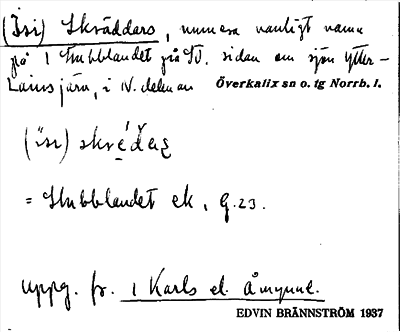 (Isi) Skräddars, numera vanligt namn
på 1 Stubblandet på SV. sidan om sjön Ytter-
Lainsjärv, i N. delen av Överkalix sn o. tg Norrb. l.
= Stubblandet ek, G. 23.
Uppg. fr. 1 Karls el. Åmynne.
EDVIN BRÄNNSTRÖM 1937